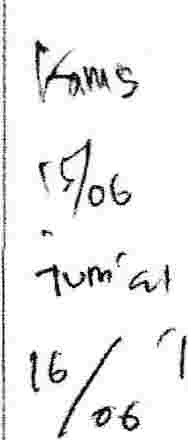 Kamis
15/06
Jum'at
16/06